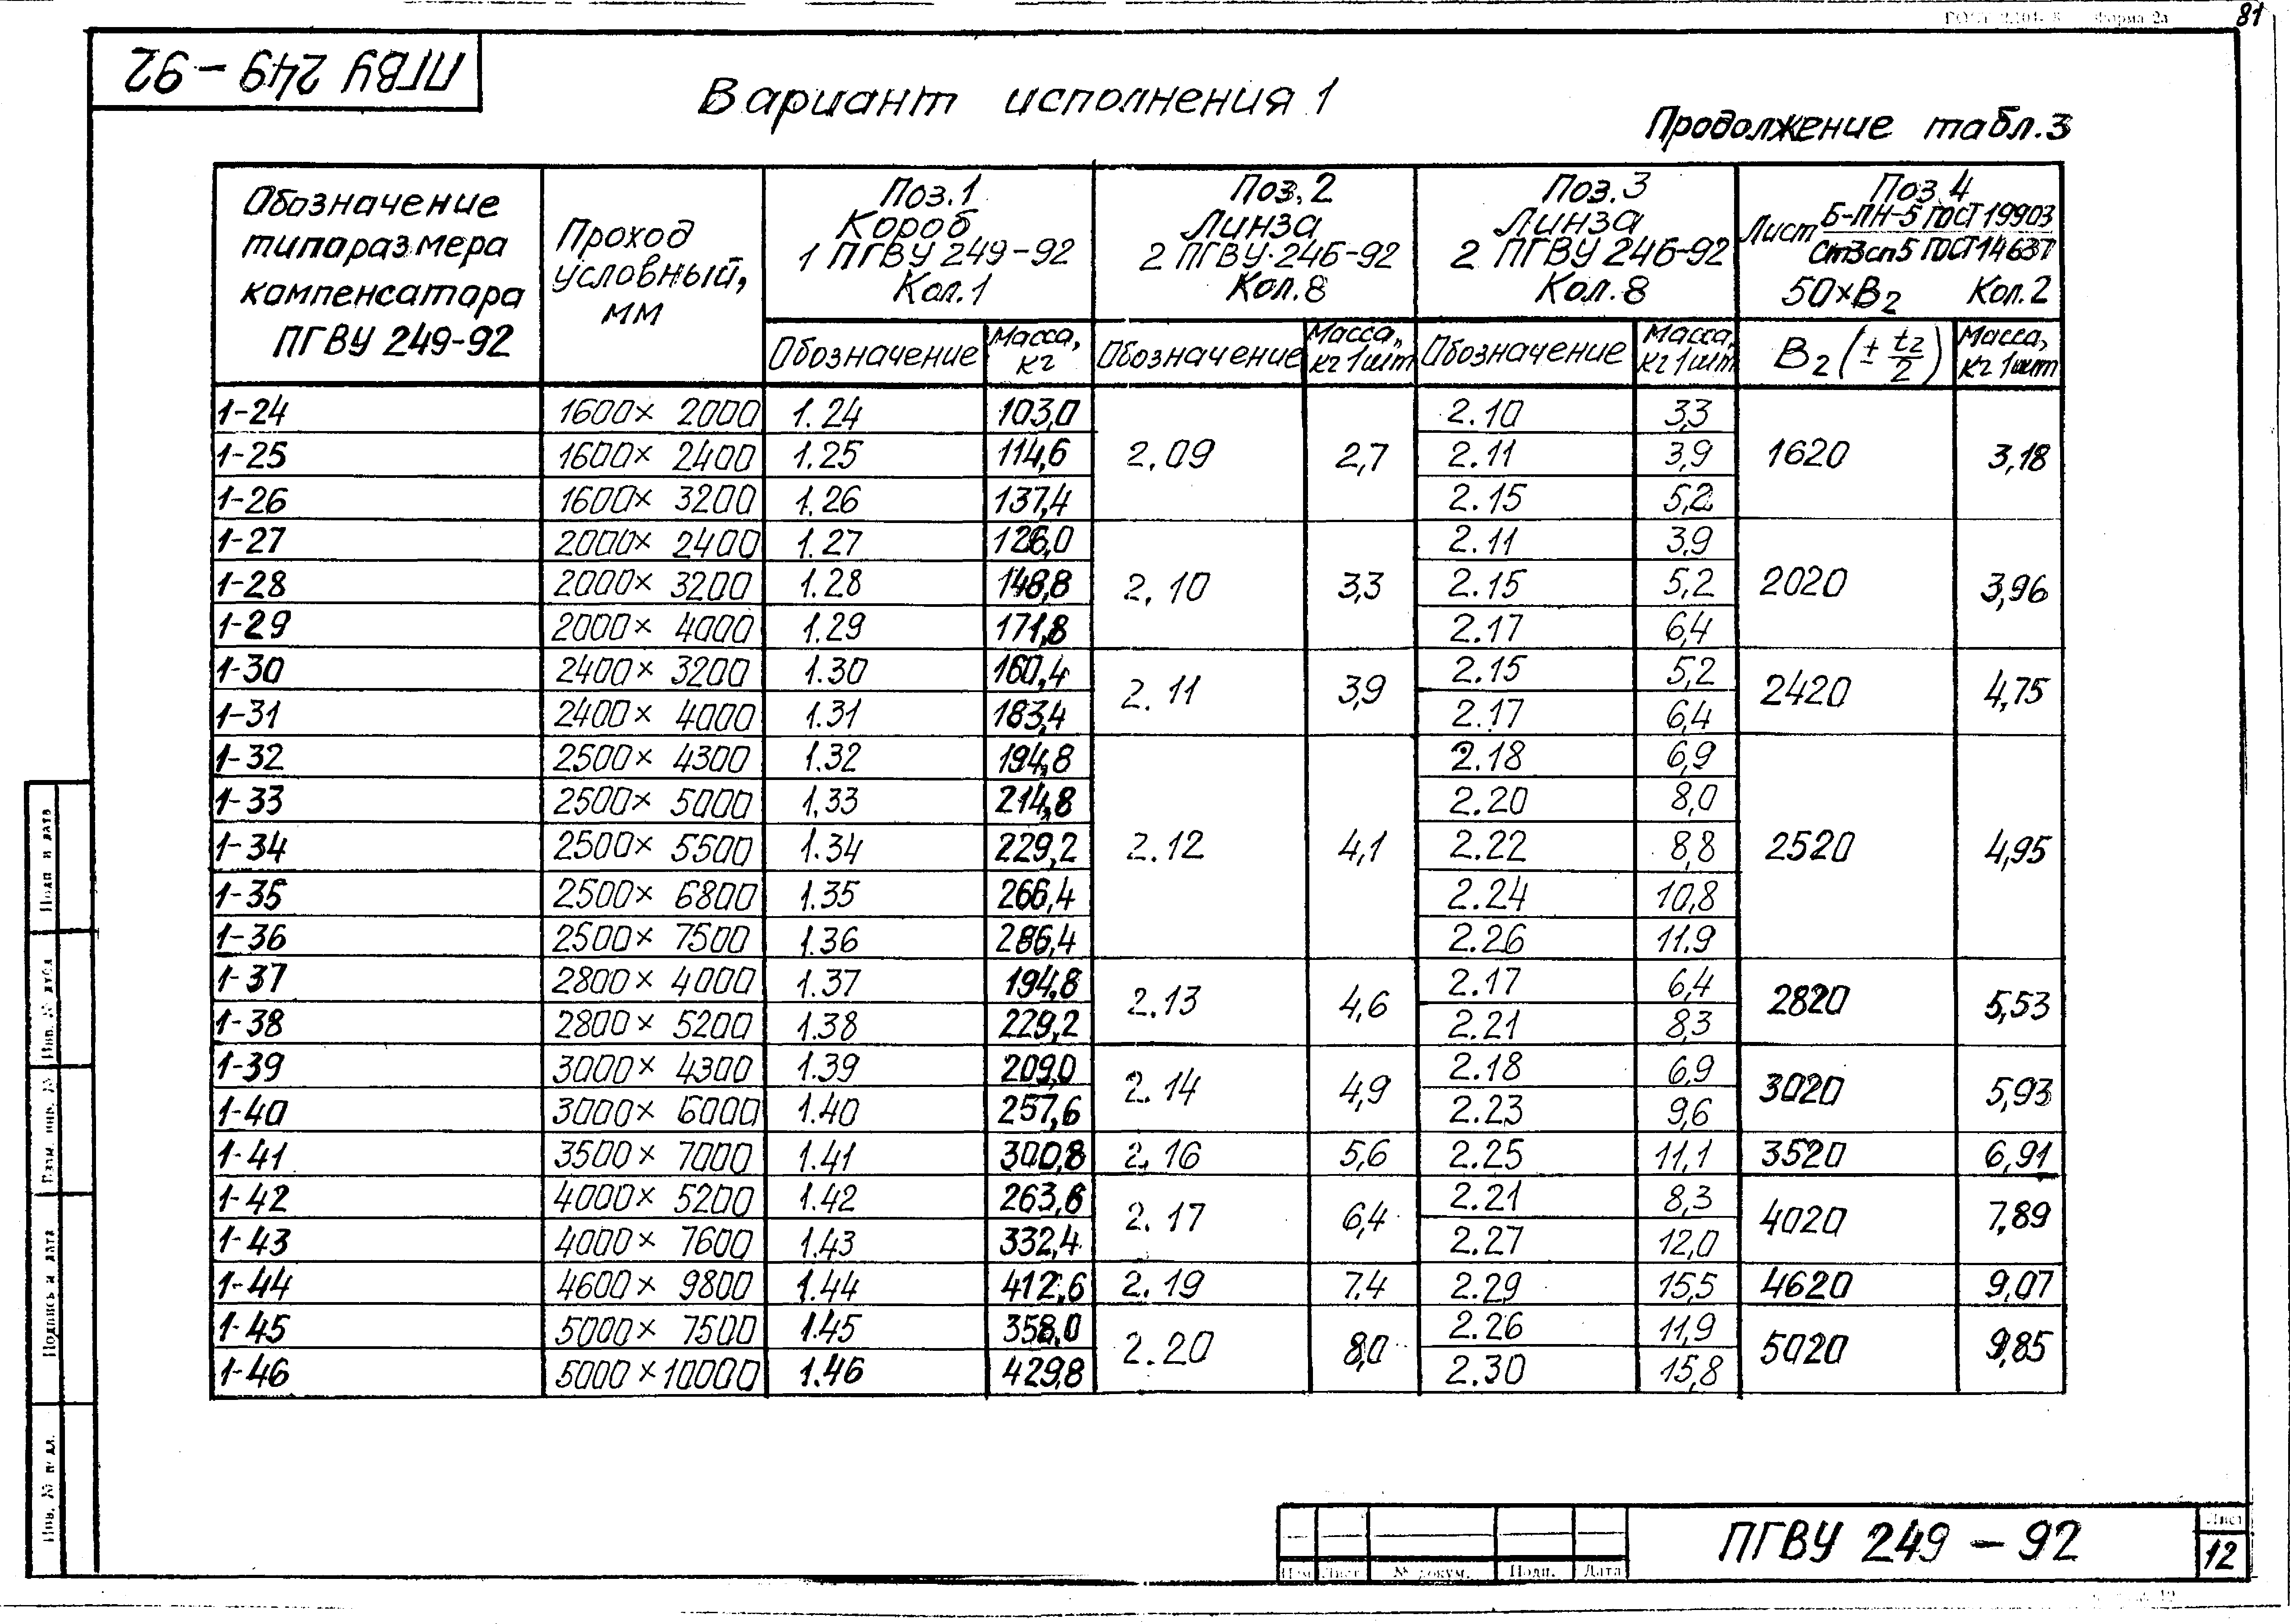 81
ПГВУ 249-92
Вариант исполнения 1
Продолжение табл.3
Обозначение типоразмера компенсатора ПГВУ 249-92
Проход условный, мм
Поз.1 Короб 1 ПГВУ 249-92 Кол.1
Поз.2 Линза 2 ПГВУ 246-92 Кол.8
Поз.3 Линза 2 ПГВУ 246-92 Кол.8
Поз.4 Лист Б-ПН-5 ГОСТ 19903 Ст3сп5 ГОСТ 14637 50×В2 Кол.2
Обозначение Масса, кг Обозначение Масса, кг 1шт Обозначение Масса, кг 1шт В2 (± t2/2) Масса, кг 1шт
1-24 1600×2000 1.24 103,0 2.10 3,3
1-25 1600×2400 1.25 114,6 2.09 2,7 2.11 3,9 1620 3,18
1-26 1600×3200 1.26 137,4 2.15 5,2
1-27 2000×2400 1.27 126,0 2.11 3,9
1-28 2000×3200 1.28 148,8 2.10 3,3 2.15 5,2 2020 3,96
1-29 2000×4000 1.29 171,8 2.17 6,4
1-30 2400×3200 1.30 160,4 2.11 3,9 2.15 5,2 2420 4,75
1-31 2400×4000 1.31 183,4 2.17 6,4
1-32 2500×4300 1.32 194,8 2.18 6,9
1-33 2500×5000 1.33 214,8 2.20 8,0
1-34 2500×5500 1.34 229,2 2.12 4,1 2.22 8,8 2520 4,95
1-35 2500×6800 1.35 266,4 2.24 10,8
1-36 2500×7500 1.36 286,4 2.26 11.9
1-37 2800×4000 1.37 194,8 2.13 4,6 2.17 6,4 2820 5,53
1-38 2800×5200 1.38 229,2 2.21 8,3
1-39 3000×4300 1.39 209,0 2.14 4,9 2.18 6,9 3020 5,93
1-40 3000×6000 1.40 257,6 2.23 9,6
1-41 3500×7000 1.41 300,8 2.16 5,6 2.25 11,1 3520 6,91
1-42 4000×5200 1.42 263,6 2.17 6,4 2.21 8,3 4020 7,89
1-43 4000×7600 1.43 332,4 2.27 12,0
1-44 4600×9800 1.44 412,6 2.19 7.4 2.29 15,5 4620 9,07
1-45 5000×7500 1.45 358,0 2.20 8,0 2.26 11,9 5020 9,85
1-46 5000×10000 1.46 429,8 2.30 15,8
Подп и дата
Инв. № дубл
Взам. инв. №
Подпись и дата
Инв. №
Изм Лист № докум. Подп. Дата
ПГВУ 249-92
Лист
12